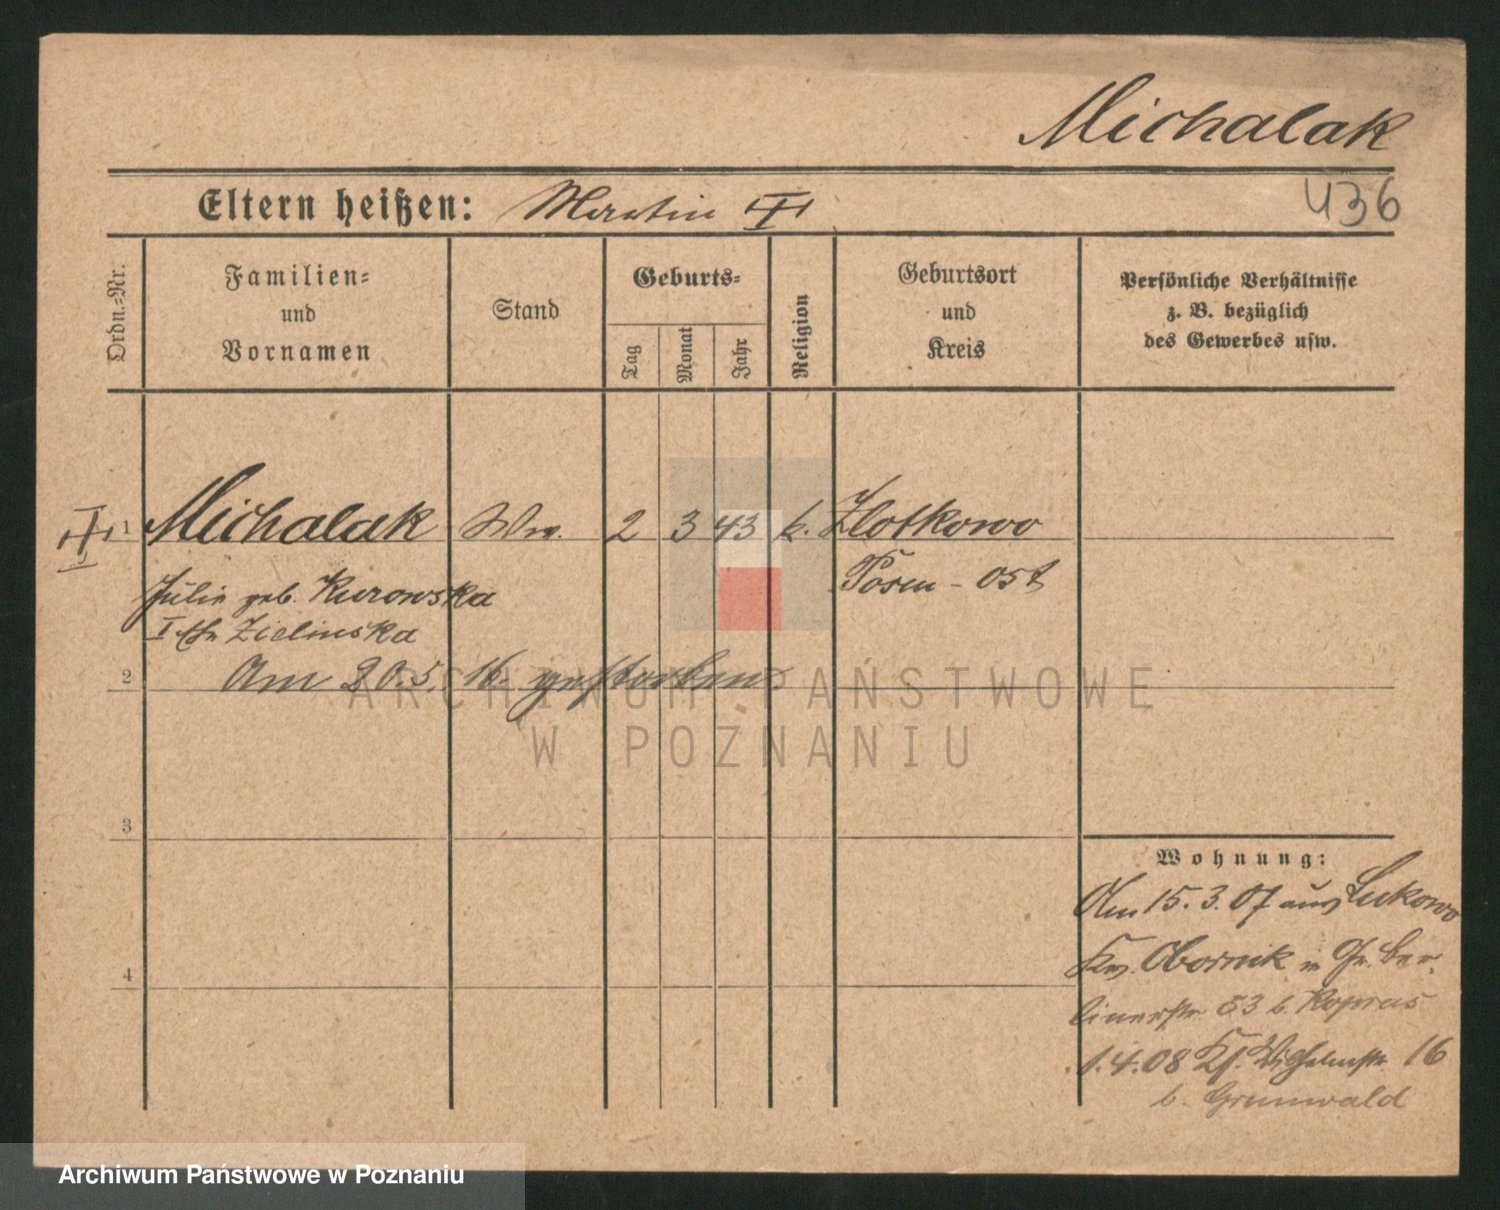 Michalak
436
Eltern heißen: Martin
Ordn.-Nr.
Familien-
und
Vornamen
Stand
Geburts-
Tag
Monat
Jahr
Religion
Geburtsort
und
Kreis
Persönliche Verhältnisse
z. B. bezüglich
des Gewerbes usw.
1 Michalak Ww. 2 3 43 k. Zlotkowo
Julie geb. Kurowska Posen-Ost
Zielinska
2 Am 20.5.16. gestorben
ARCHIWUM PAŃSTWOWE
W POZNANIU
3
Wohnung:
Am 15.3.07 aus Lukowo
Krs. Obornik in Gr. Ber-
4
linerstr. 53 b. Kopras
1.4.08 Kf. Wilhelmstr. 16
b. Grunwald
Archiwum Państwowe w Poznaniu